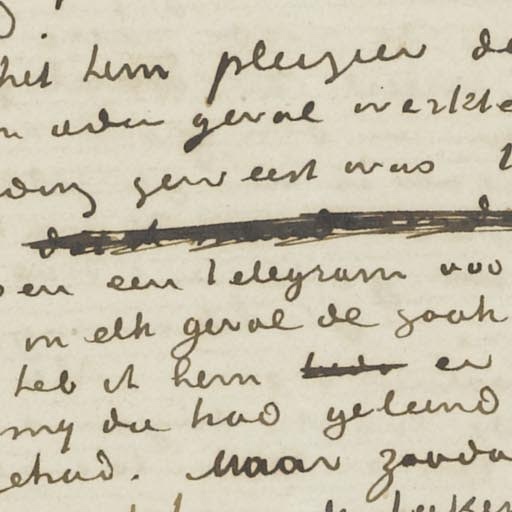 het hem pleizier de
in ieder geval werkte
ding geweest was
en een telegram voo
in elk geval de zaak
heb ik hem er
my die had geleend
gehad. Maar zooda